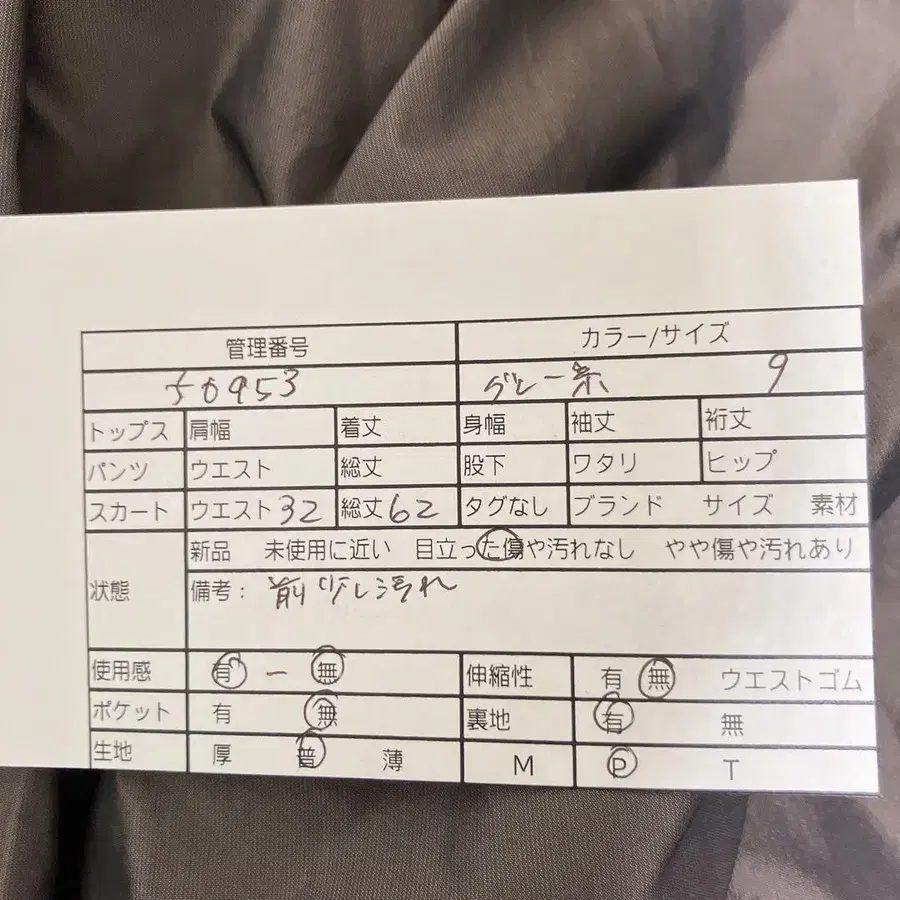 管理番号 カラー/サイズ
f0953 グレー系 9
トップス 肩幅 着丈 身幅 袖丈 裄丈
パンツ ウエスト 総丈 股下 ワタリ ヒップ
スカート ウエスト 32 総丈 62 タグなし ブランド サイズ 素材
新品 未使用に近い 目立った傷や汚れなし やや傷や汚れあり
状態 備考: 前少し汚れ
使用感 有 ー 無 伸縮性 有 無 ウエストゴム
ポケット 有 無 裏地 有 無
生地 厚 普 薄 M P T